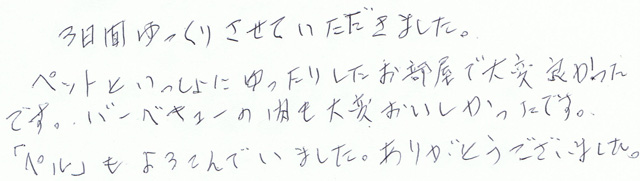 3日間ゆっくりさせていただきました。
ペットといっしょにゆったりしたお部屋で大変良かった
です。バーベキューの肉も大変おいしかったです。
「ペル」もよろこんでいました。ありがとうございました。